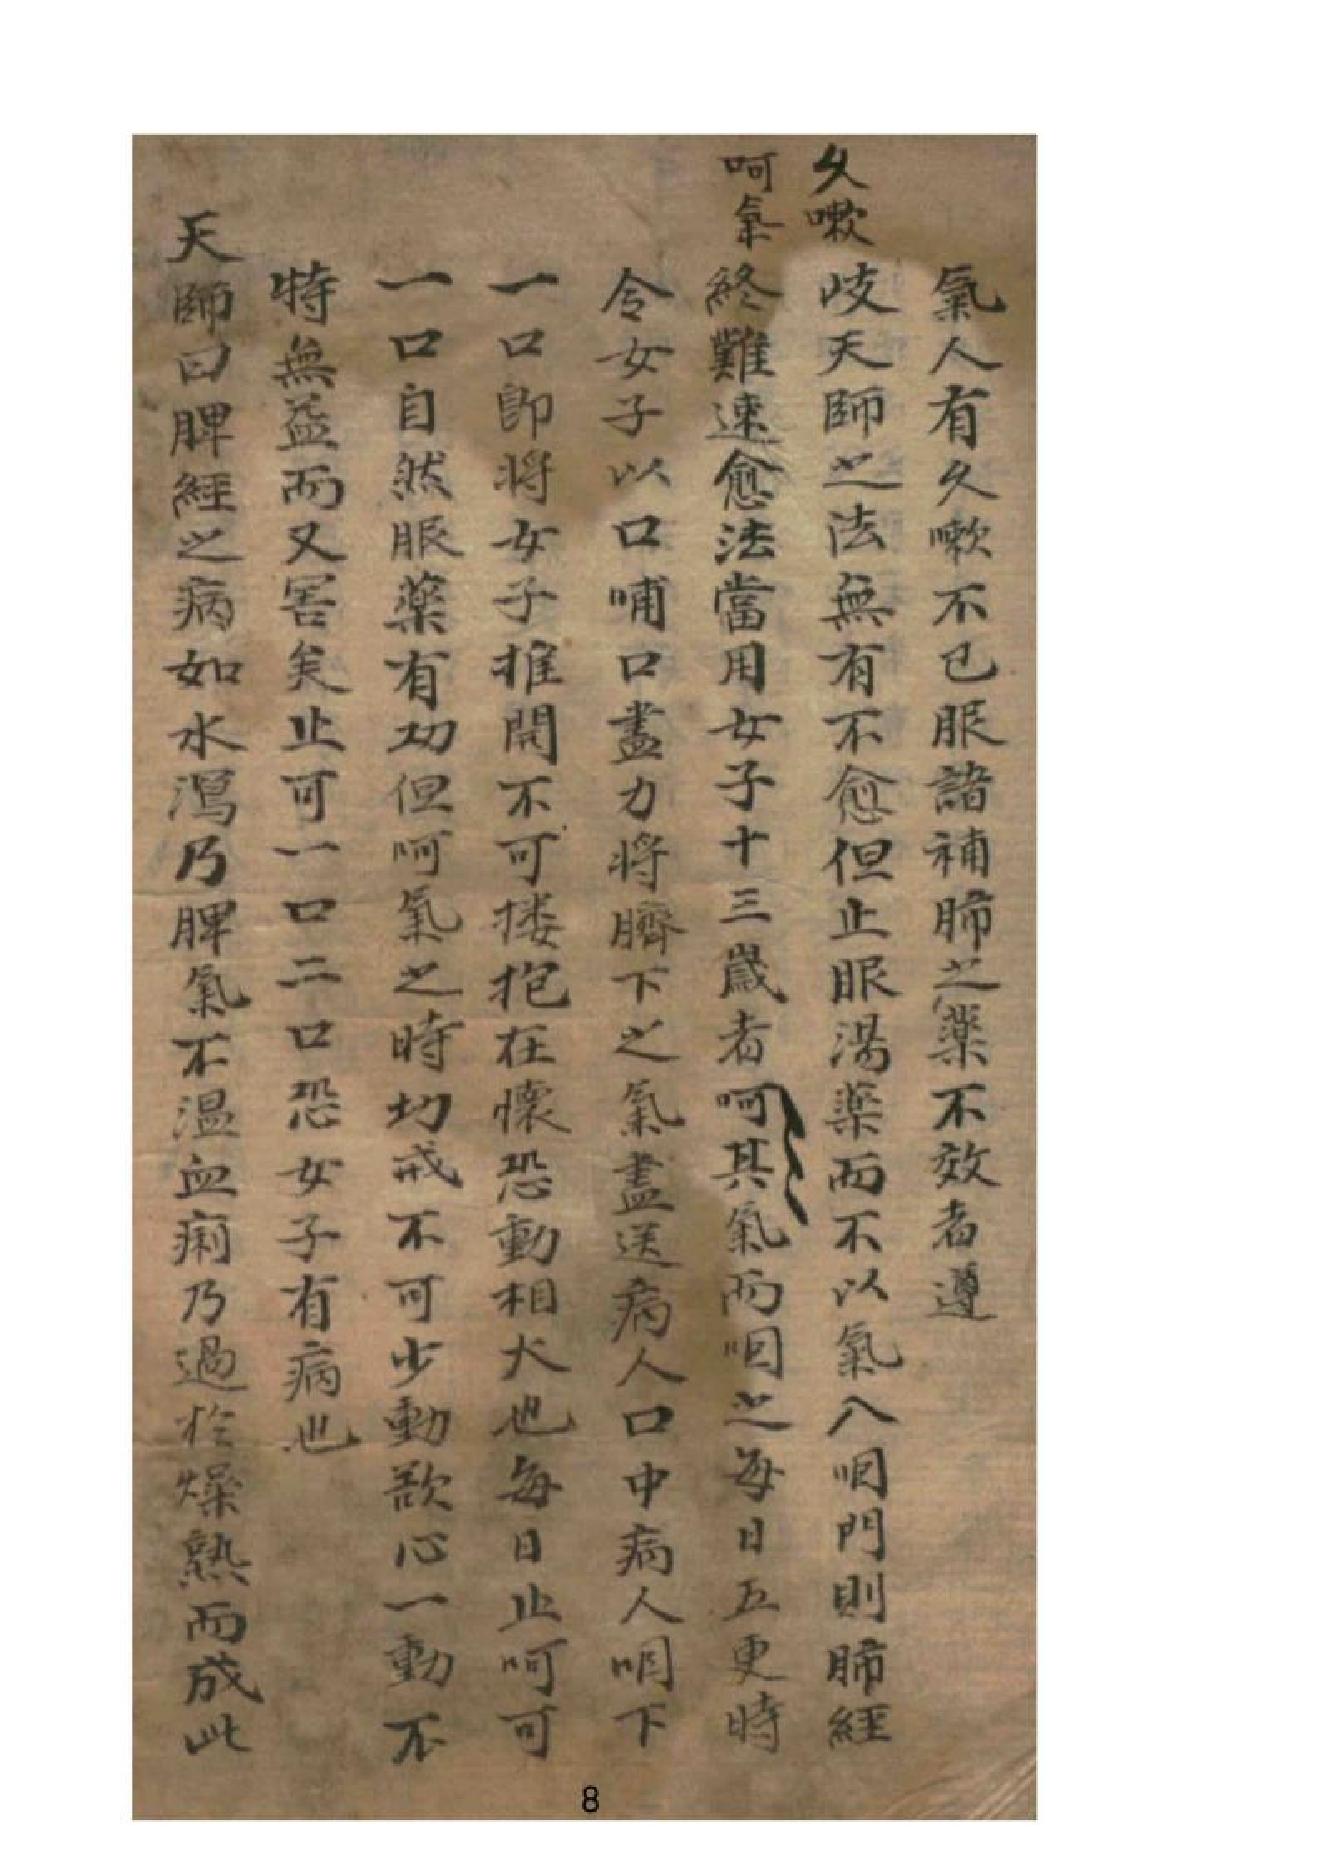 氣人有久嗽不已服諸補肺之藥不效者遵
久嗽
岐天師之法無有不愈但止服湯藥而不以氣入咽門則肺經
呵氣
終難速愈法當用女子十三歲者呵其氣而咽之每日五更時
令女子以口哺口盡力將臍下之氣盡送病人口中病人咽下
一口即将女子推開不可搂抱在懷恐動相火也每日止呵可
一口自然服藥有功但呵氣之時切戒不可少動歆心一動不
特無益而又害矣止可一口二口恐女子有病也
天師曰脾經之病如水瀉乃脾氣不温血痢乃過於燥熟而成此
8